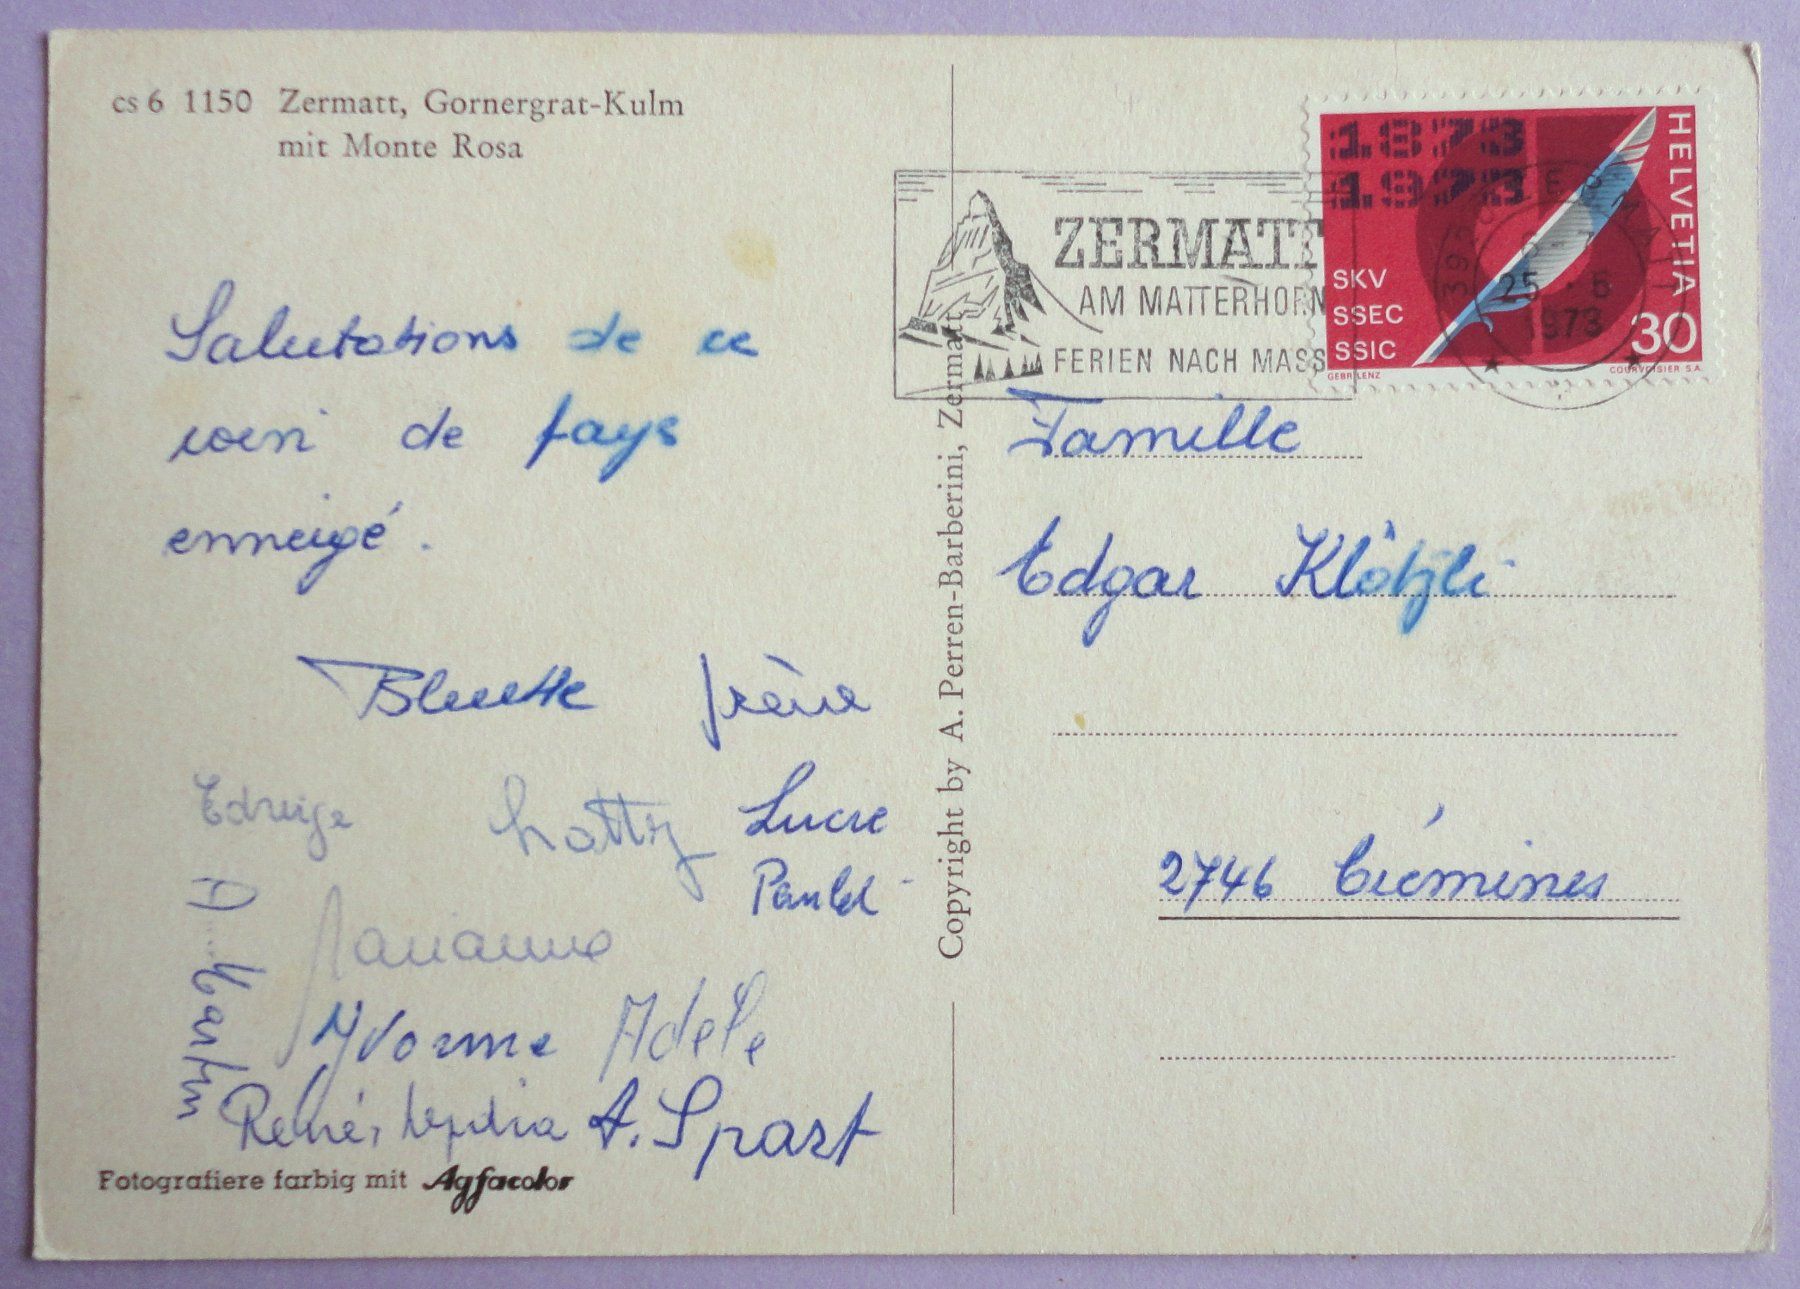 cs 6 1150 Zermatt, Gornergrat-Kulm
mit Monte Rosa
Salutations de ce
coin de pays
enneigé.
Bluette Irène
Edwige Lotty Lucie
Marianne
Yvonne Adele
René, Lydia A. Spart
Martin
Fotografiere farbig mit Agfacolor
Copyright by A. Perren-Barberini, Zermatt
ZERMATT
AM MATTERHORN
FERIEN NACH MASS
1873
1973
HELVETIA
SKV
SSEC
SSIC
30
GEBR. LENZ
COURVOISIER S.A.
3920 ZERMATT
25.-6
1973
Famille
Edgar Klötzli
2746 Crémines